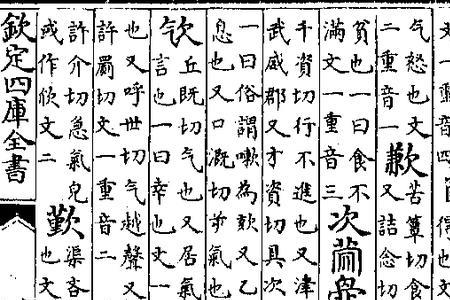 文一重音四
得也文
气怒也文
二重音一
歉
苦簟切食
又詰念切
貧也一曰食不
滿文一重音三
次
千資切行不進也又津
武威郡又才資切具次
一曰俗謂嗽為欬又乙
息也又口溉切屰氣也
丘既切气也又居氣
言也一曰幸也文一
也又呼世切气越聲又
許罽切文一重音二
許介切急氣皃
文二
渠吝
也文
欽定四庫全書